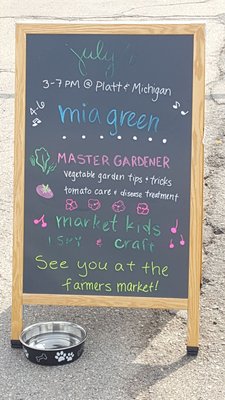 july 1
3-7 PM @ Platt & Michigan
4-6
mia green
MASTER GARDENER
Vegetable garden tips + tricks
tomato care & disease treatment
market kids
I SPY & craft
See you at the
farmers market!